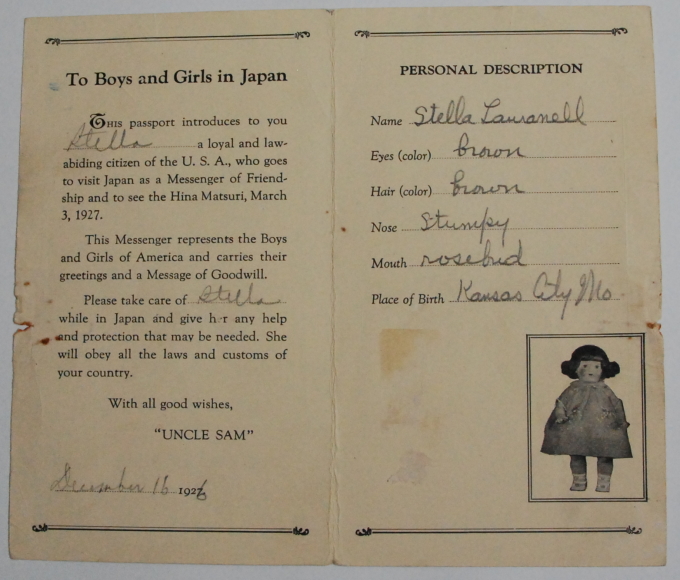 To Boys and Girls in Japan
THIS passport introduces to you
Stella a loyal and law-
abiding citizen of the U. S. A., who goes
to visit Japan as a Messenger of Friend-
ship and to see the Hina Matsuri, March
3, 1927.
This Messenger represents the Boys
and Girls of America and carries their
greetings and a Message of Goodwill.
Please take care of Stella
while in Japan and give h r any help
and protection that may be needed. She
will obey all the laws and customs of
your country.
With all good wishes,
"UNCLE SAM"
December 16 1926
PERSONAL DESCRIPTION
Name Stella Lauranell
Eyes (color) brown
Hair (color) brown
Nose Stumpy
Mouth rosebud
Place of Birth Kansas City Mo